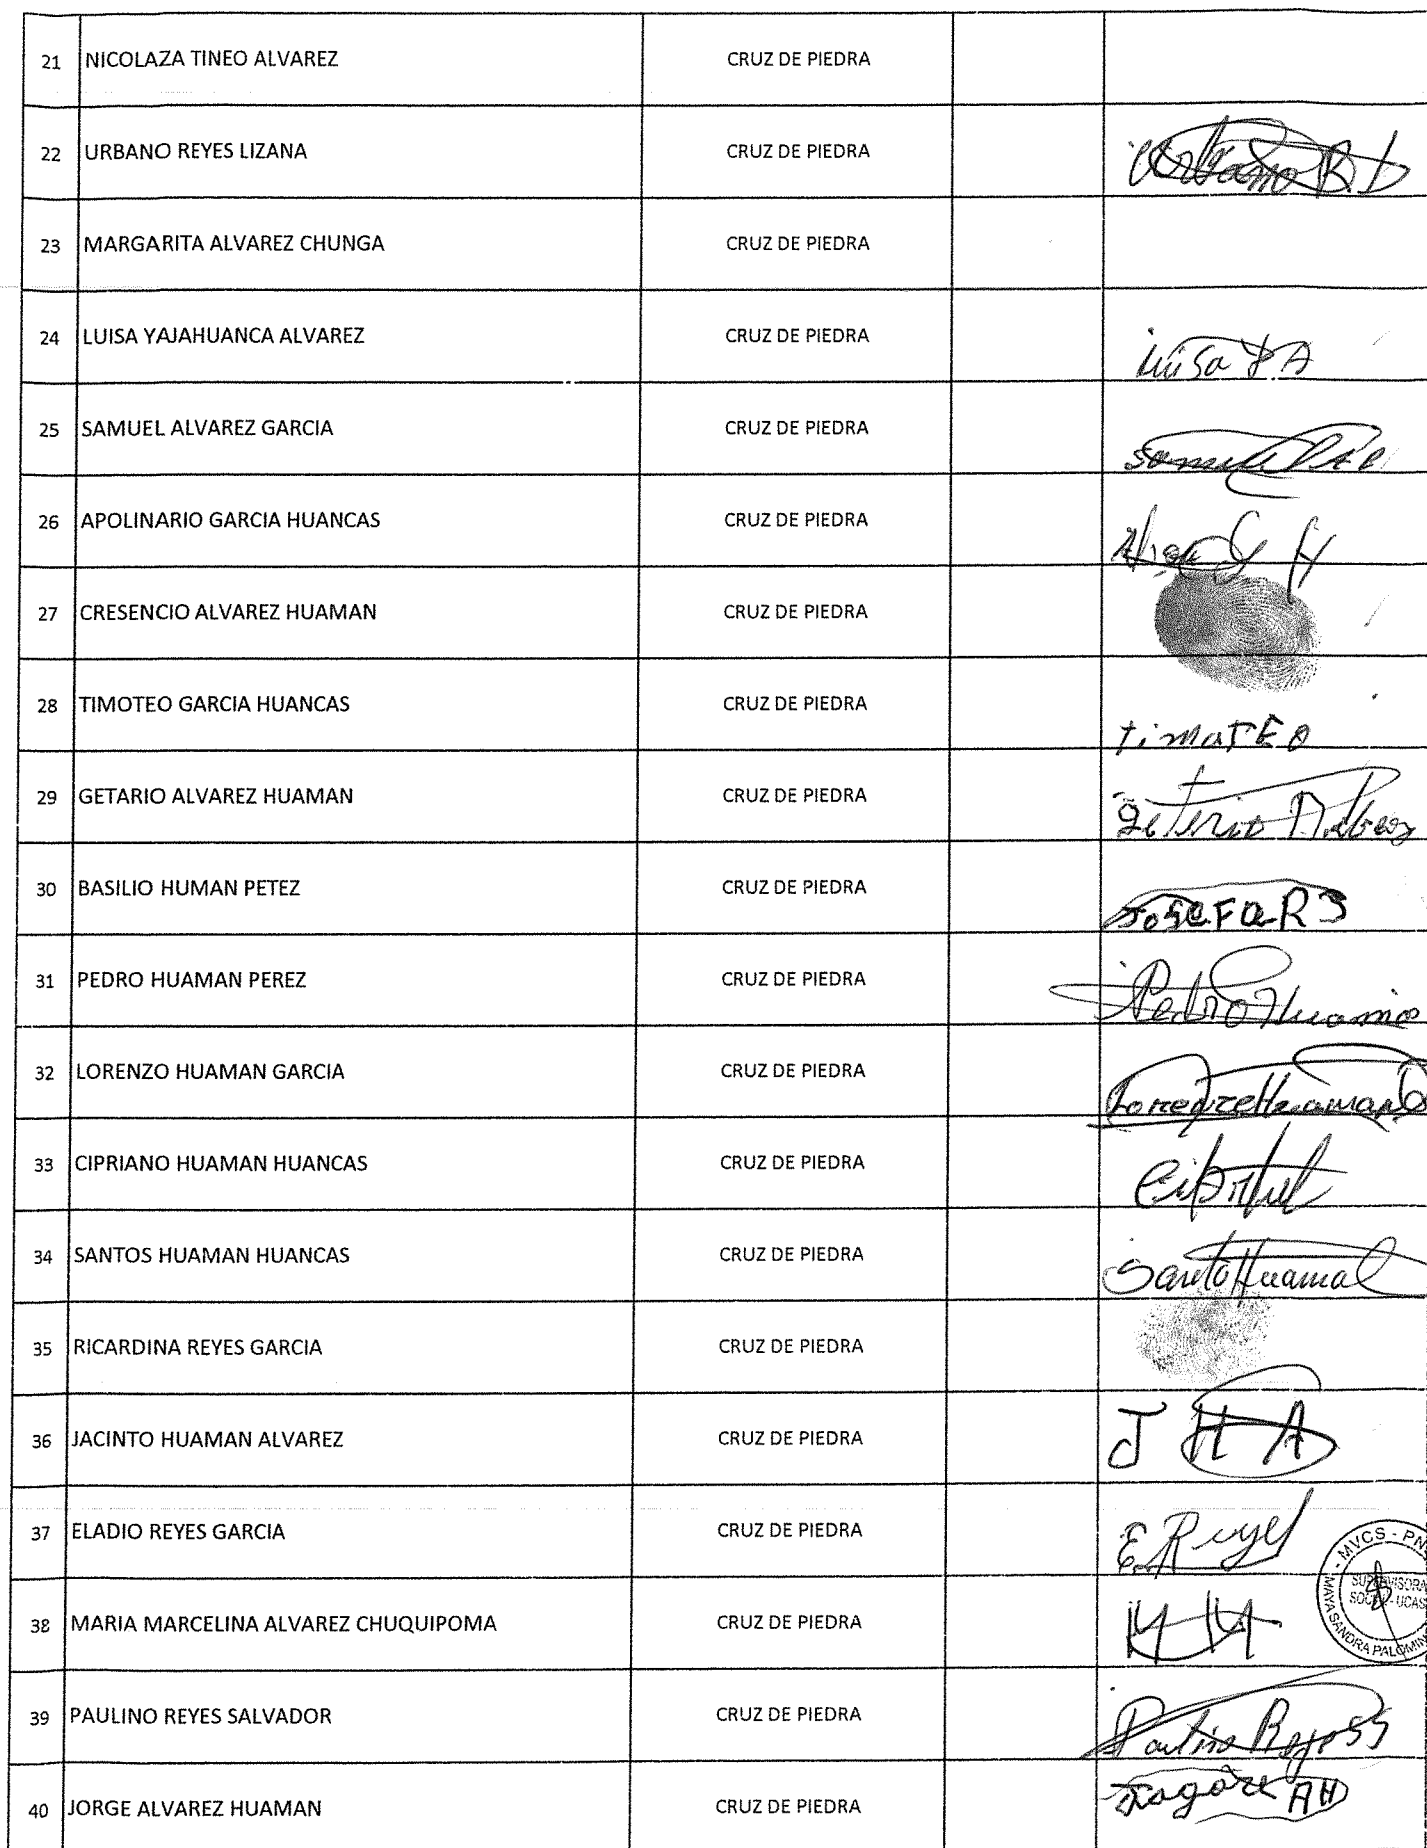 21 NICOLAZA TINEO ALVAREZ CRUZ DE PIEDRA
22 URBANO REYES LIZANA CRUZ DE PIEDRA Urbano R.L
23 MARGARITA ALVAREZ CHUNGA CRUZ DE PIEDRA
24 LUISA YAJAHUANCA ALVAREZ CRUZ DE PIEDRA Luisa Y A
25 SAMUEL ALVAREZ GARCIA CRUZ DE PIEDRA
26 APOLINARIO GARCIA HUANCAS CRUZ DE PIEDRA
27 CRESENCIO ALVAREZ HUAMAN CRUZ DE PIEDRA
28 TIMOTEO GARCIA HUANCAS CRUZ DE PIEDRA timoTEO
29 GETARIO ALVAREZ HUAMAN CRUZ DE PIEDRA
30 BASILIO HUMAN PETEZ CRUZ DE PIEDRA JoseFa R S
31 PEDRO HUAMAN PEREZ CRUZ DE PIEDRA Pedro
32 LORENZO HUAMAN GARCIA CRUZ DE PIEDRA
33 CIPRIANO HUAMAN HUANCAS CRUZ DE PIEDRA
34 SANTOS HUAMAN HUANCAS CRUZ DE PIEDRA
35 RICARDINA REYES GARCIA CRUZ DE PIEDRA
36 JACINTO HUAMAN ALVAREZ CRUZ DE PIEDRA J H A
37 ELADIO REYES GARCIA CRUZ DE PIEDRA E Reyes
MVCS - PN
SUPERVISORA
SOCIAL - UCAS
MAYA SANDRA PALOMIN
38 MARIA MARCELINA ALVAREZ CHUQUIPOMA CRUZ DE PIEDRA
39 PAULINO REYES SALVADOR CRUZ DE PIEDRA
40 JORGE ALVAREZ HUAMAN CRUZ DE PIEDRA AH